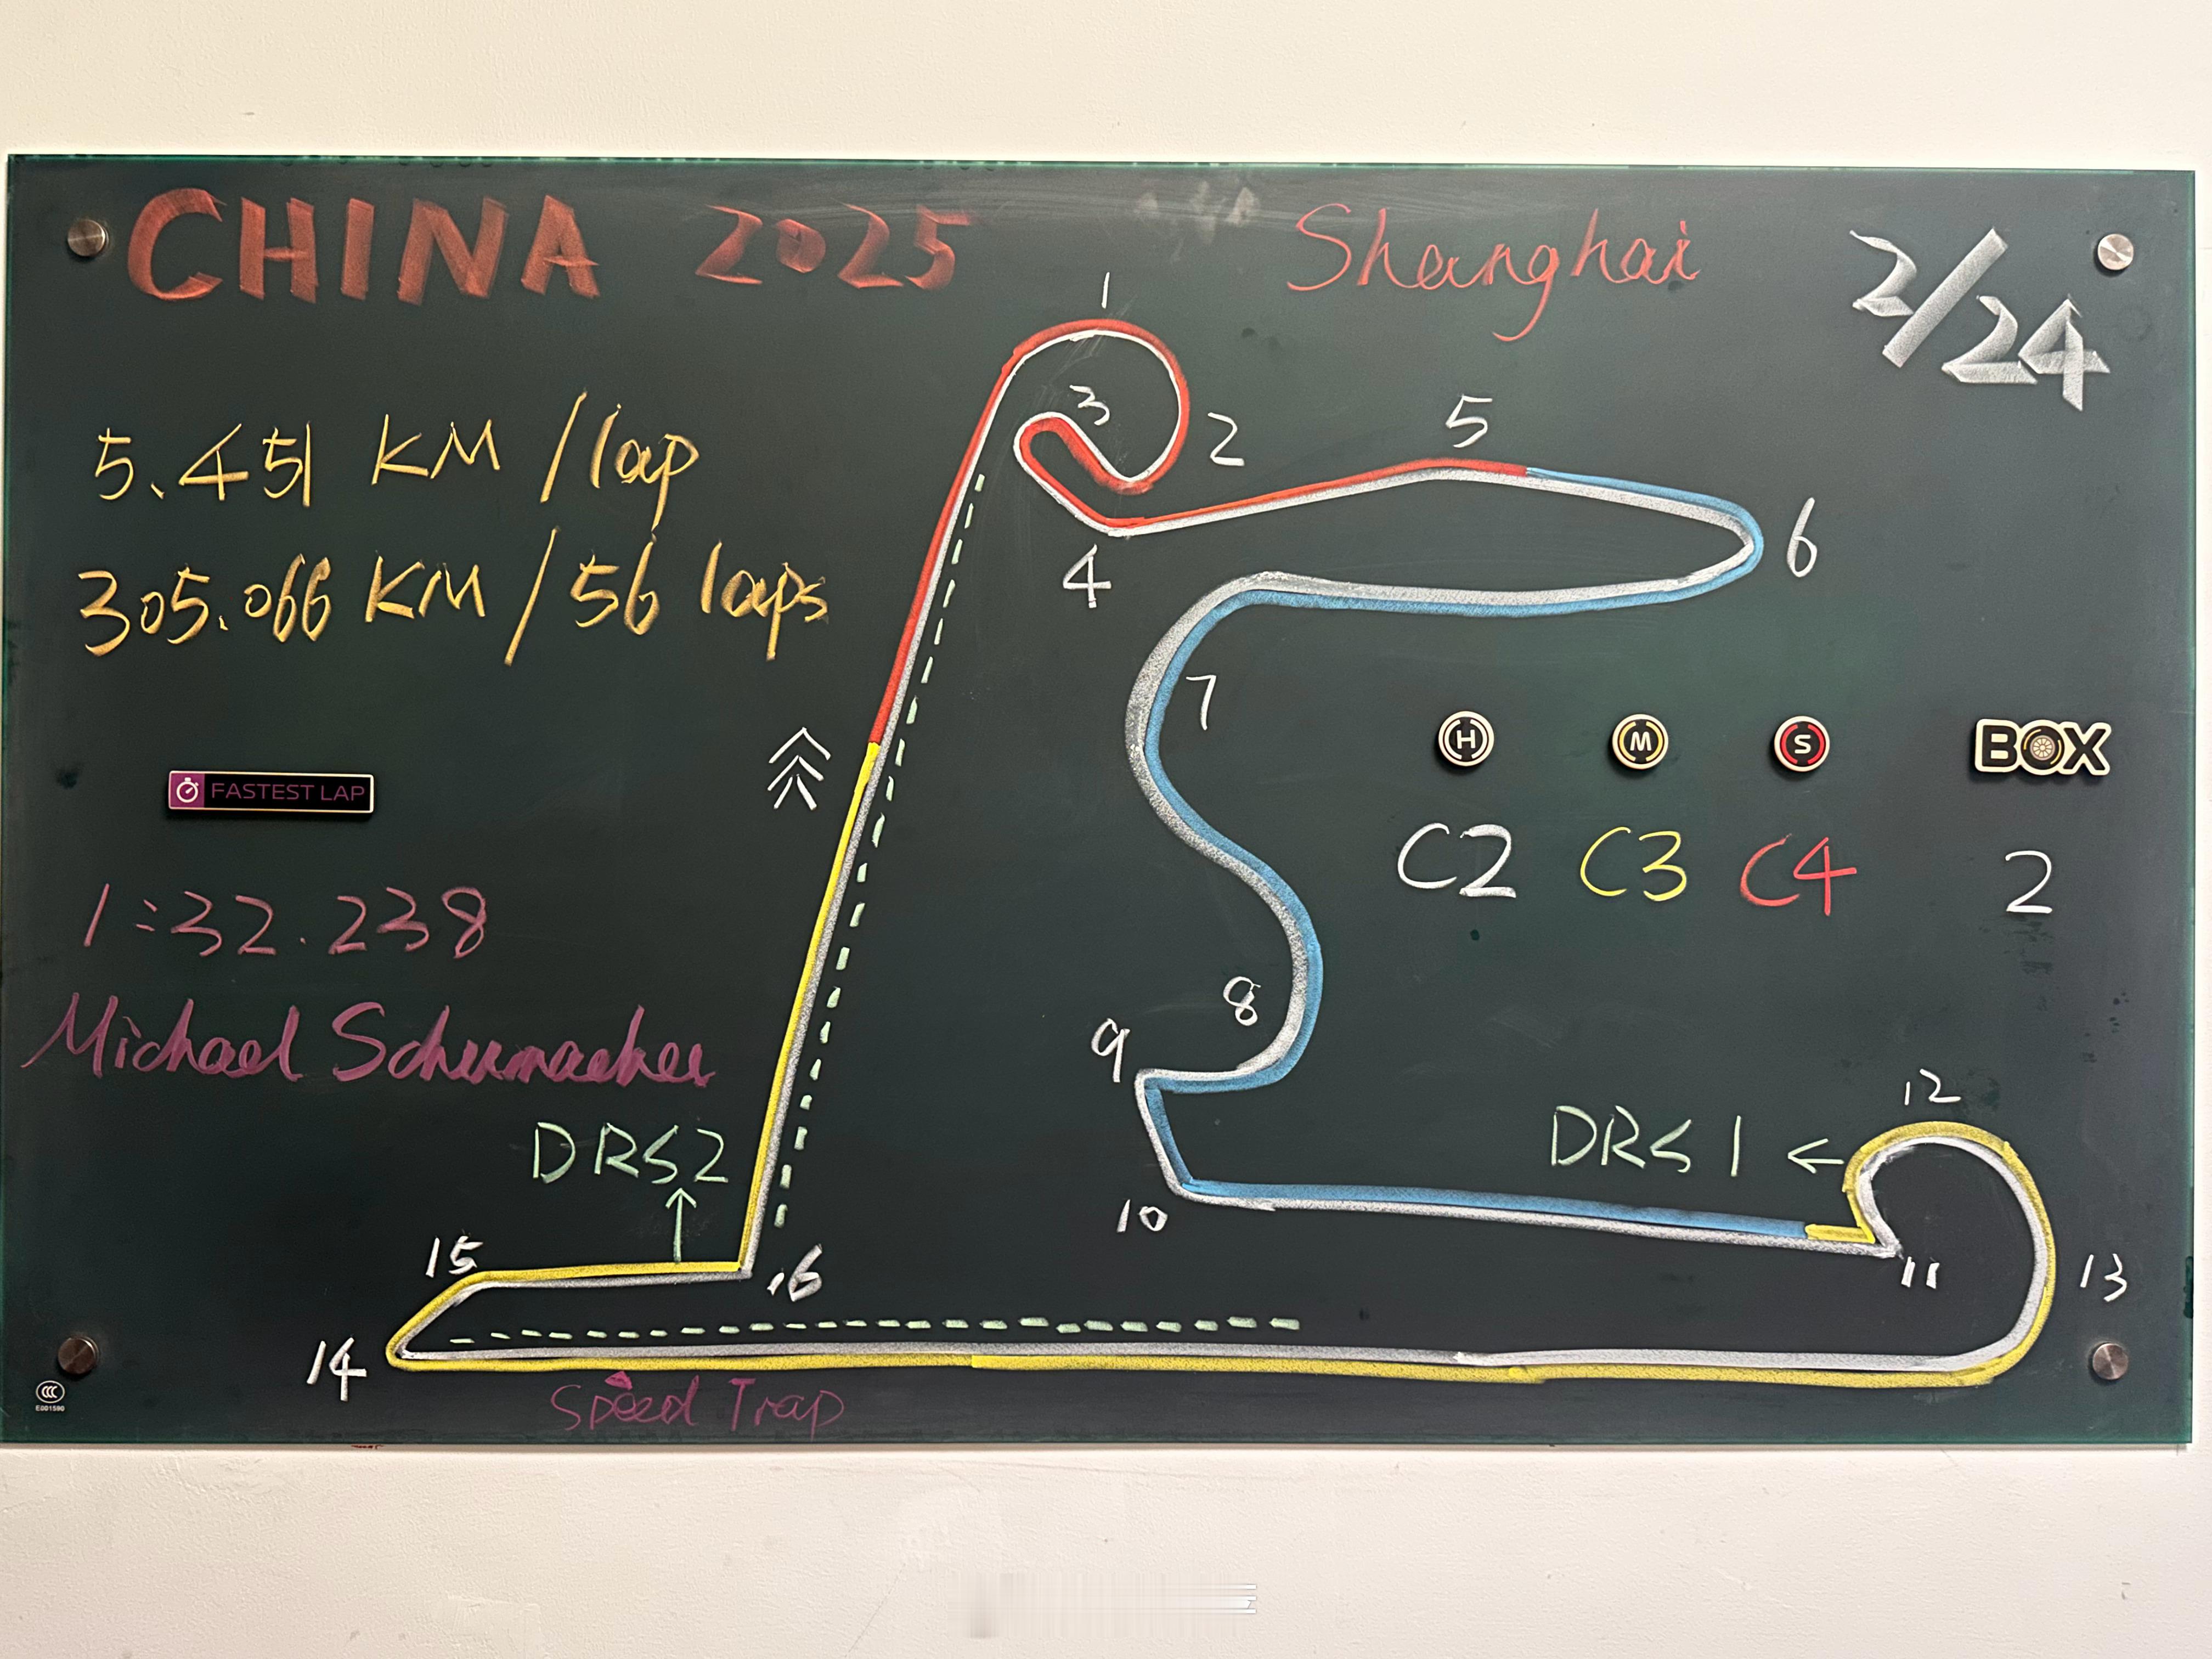 CHINA 2025
Shanghai
2/24
5.451 KM /lap
305.066 KM / 56 laps
FASTEST LAP
1:32.238
Michael Schumacher
1
2
3
4
5
6
7
8
9
10
11
12
13
14
15
16
H M S BOX
C2 C3 C4 2
DRS2
DRS 1
Speed Trap
CCC
E001590